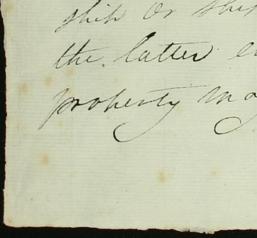 ship or ship
the latter
property may